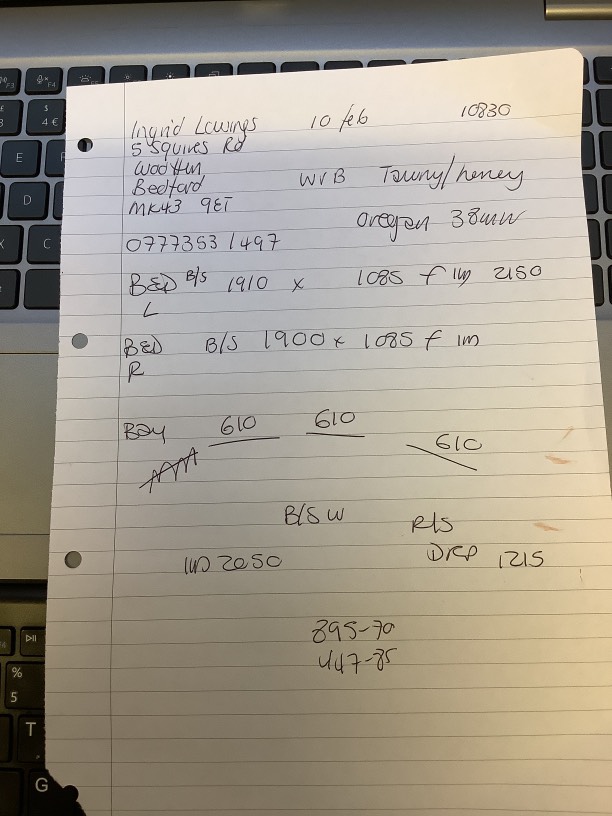 Ingrid Lawings 10 feb 10830
5 Squires Rd
Wootten,
Bedford WVB Tawny/honey
MK43 9ET Oregon 38mm
07773531497
BED B/S 1910 x 1085 f 1m 2150
L
BED B/S 1900 x 1085 f 1m
R
Bay 610 610 610
B/S W R/S
1m 2050 Drop 1215
895-70
447-85